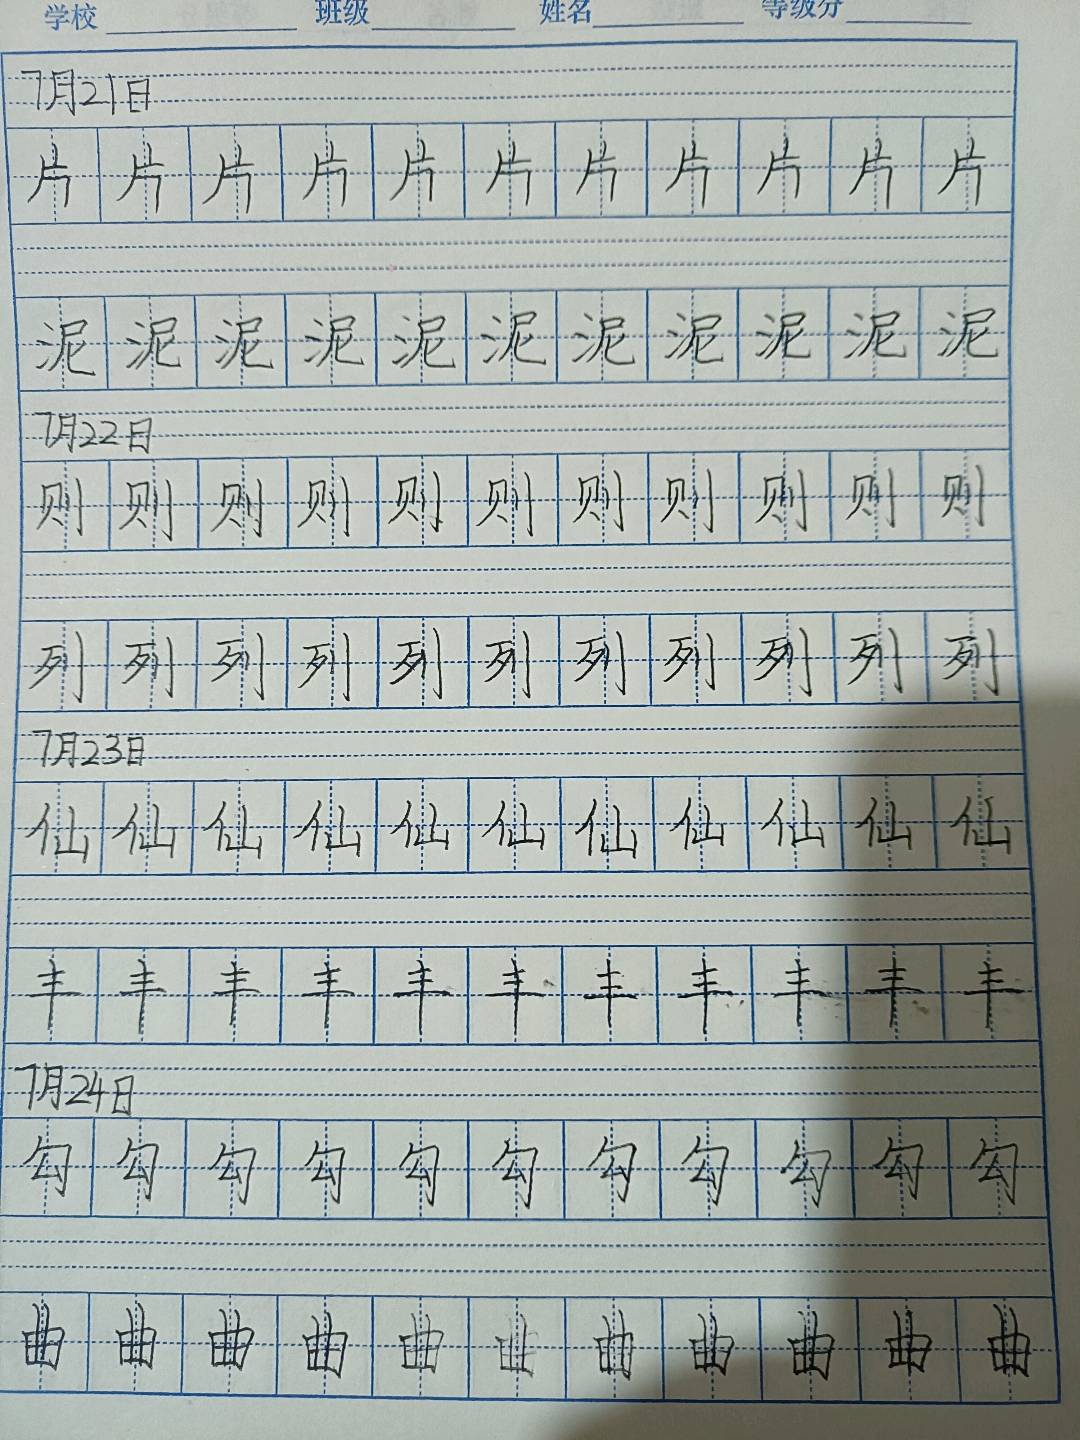 学校 班级 姓名 等级分
7月21日
片 片 片 片 片 片 片 片 片 片 片
泥 泥 泥 泥 泥 泥 泥 泥 泥 泥 泥
7月22日
则 则 则 则 则 则 则 则 则 则 则
列 列 列 列 列 列 列 列 列 列 列
7月23日
仙 仙 仙 仙 仙 仙 仙 仙 仙 仙 仙
丰 丰 丰 丰 丰 丰 丰 丰 丰 丰 丰
7月24日
勾 勾 勾 勾 勾 勾 勾 勾 勾 勾 勾
曲 曲 曲 曲 曲 曲 曲 曲 曲 曲 曲